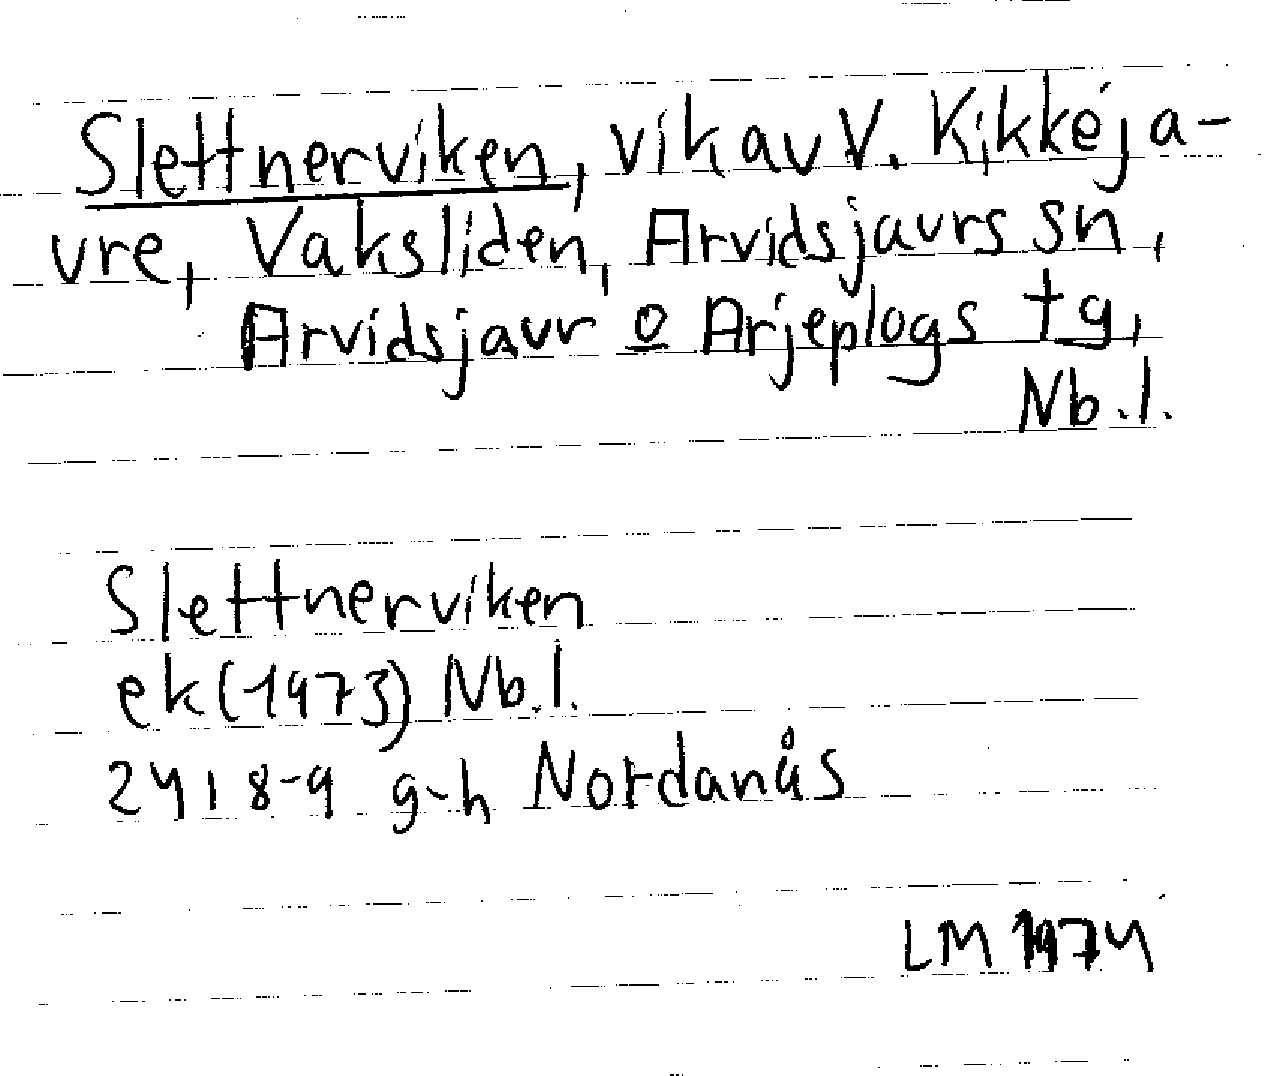 Slettnerviken, vik av V. Kikkéja-
vre, Vaksliden, Arvidsjaurs sn,
Arvidsjaur o Arjeplogs tg,
Nb.l.
Slettnerviken
ek(1973) Nb.l.
241 8-9 g-h Nordanås
LM 1974